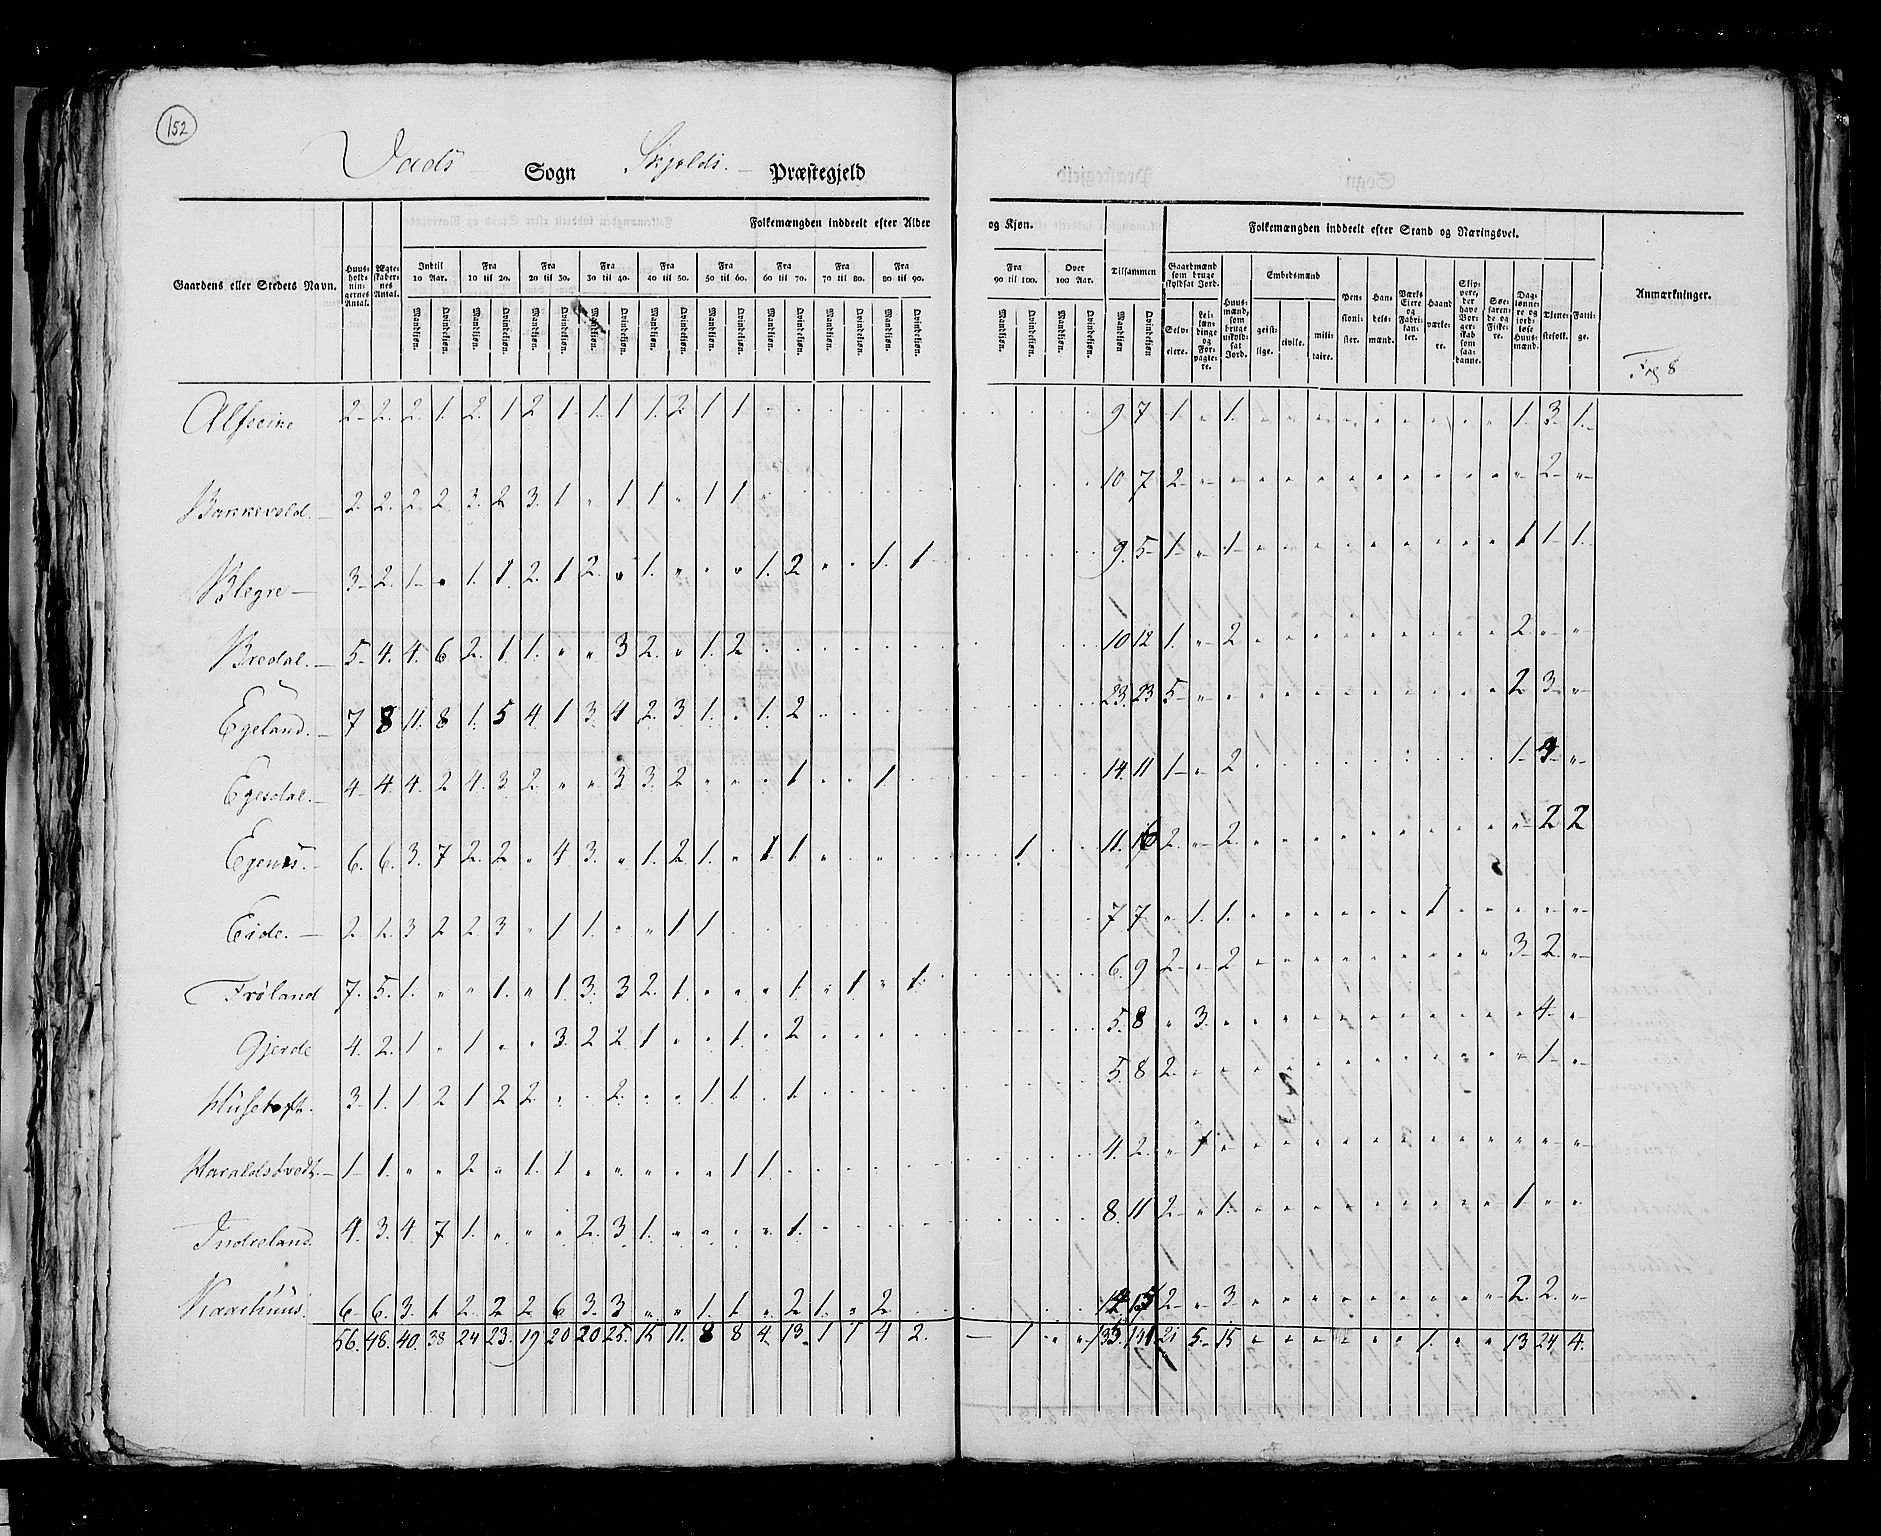 152
Vads Sogn Skjolds Præstegjeld
Folkemængden inddeelt efter Alder og Kjøn.
Folkemængden inddeelt efter Stand og Næringsvei.
Gaardens eller Stedets Navn.
Huusholdningernes Antal.
Ægteskabernes Antal.
Indtil 10 Aar. Fra 10 til 20. Fra 20 til 30. Fra 30 til 40. Fra 40 til 50. Fra 50 til 60. Fra 60 til 70. Fra 70 til 80. Fra 80 til 90. Fra 90 til 100. Over 100 Aar.
Tilsammen
Mandkjøn. Qvindekjøn.
Gaardmænd som bruge skyldsat Jord.
Selveiere. Leilændinge og Forpagtere.
Huusmænd, som bruge uskyldsat Jord.
Embedsmænd
geistlige. civile. militaire.
Pensionister.
Handelsmænd.
Værks Eiere og Fabrikanter.
Haandværkere.
Skippere, der have Borgerskab som saadanne.
Søefarende og Fiskere.
Daglønnere og jordløse Huusmænd.
Tjenestefolk.
Fattige.
Anmærkninger.
Frg 8
Alfseine 2 2 2 1 2 1 2 1 1 1 1 2 1 1 9 7 1 " 1 1 3 1
Bakkevold 2 2 2 2 3 2 3 1 " 1 1 " 1 1 10 7 2 " " 2 "
Blegre 3 2 1 " 1 1 2 1 2 " 1 " " " 1 2 " " 1 1 9 5 1 " 1 1 1 1
Bredal 5 4 4 6 2 1 1 " " 3 2 " 1 2 10 12 1 " 2 2 " "
Egeland 7 8 11 8 1 5 4 1 3 4 2 3 1 " 1 2 23 23 5 " " 2 3 "
Egesdal 4 4 4 2 4 3 2 " " 3 3 2 " " " 1 " " 1 14 11 1 " 2 1 4 "
Egenæs 6 6 3 7 2 2 " 4 3 " 1 2 1 " 1 1 " " 1 11 16 2 " 2 " 2 2
Eide 2 2 3 2 2 3 " 1 1 " " 1 1 7 7 " 1 1 1 " " "
Frøland 7 5 1 " " 1 " 1 3 3 2 1 " " " 1 " 1 " 1 6 9 2 " 2 3 2 "
Gjerde 4 2 1 " 1 " " 3 2 2 1 " " 1 " 2 5 8 " 3 " 4 "
Husetoft 3 1 1 2 1 2 2 " " 2 " " 1 1 " 1 5 8 2 " 1 "
Haraldstvedt 1 1 " " 2 " 1 1 " " " " " 1 1 4 2 " 1 " " "
Indreland 4 3 4 7 1 " " " 2 3 1 " " " " 1 8 11 2 " 1 1 " "
Kaarhuus 6 6 3 1 2 2 2 6 3 3 " " 1 1 " 2 1 " 2 14 15 2 " 3 2 2 "
56 48 40 38 24 23 19 20 20 25 15 11 8 8 4 13 1 1 4 2 — 1 " " 135 141 21 5 15 " " " " " " 1 " " 13 24 4